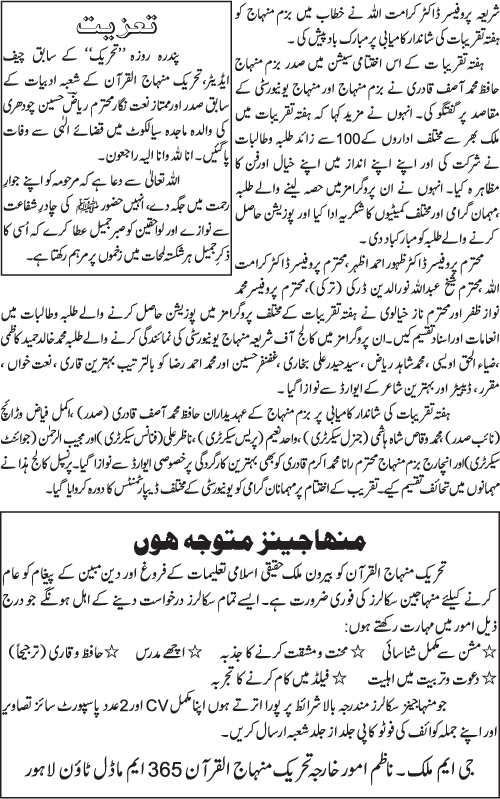 شریعہ پروفیسر ڈاکٹر کرامت اللہ نے خطاب میں بزم منہاج کو
ہفتہ تقریبات کی شاندار کامیابی پر مبارک باد پیش کی۔
ہفتہ تقریبات کے اس اختتامی سیشن میں صدر بزم منہاج
حافظ محمد آصف قادری نے بزم منہاج اور منہاج یونیورسٹی کے
مقاصد پر گفتگو کی۔ انہوں نے مزید کہا کہ ہفتہ تقریبات میں
ملک بھر سے مختلف اداروں کے 100 سے زائد طلبہ و طالبات
نے شرکت کی اور اپنے اپنے انداز میں اپنے خیال اور فن کا
مظاہرہ کیا۔ انہوں نے ان پروگرامز میں حصہ لینے والے طلبہ
،مہمان گرامی اور مختلف کمیٹیوں کا شکریہ ادا کیا اور پوزیشن حاصل
کرنے والے طلبہ کو مبارکباد دی۔
محترم پروفیسر ڈاکٹر ظہور احمد اظہر، محترم پروفیسر ڈاکٹر کرامت
اللہ، محترم شیخ عبداللہ نورالدین درکی (ترکی)، محترم پروفیسر محمد
نواز ظفر اور محترم ناز خیالوی نے ہفتہ تقریبات کے مختلف پروگرامز میں پوزیشن حاصل کرنے والے طلبہ و طالبات میں
انعامات اور اسناد تقسیم کیں۔ ان پروگرامز میں کالج آف شریعہ منہاج یونیورسٹی کی نمائندگی کرنے والے طلبہ محمد خالد حمید کاظمی
،ضیاء الحق اویسی، محمد شاہد ریاض، سید حیدر علی بخاری، غضنفر حسین اور محمد احمد رضا کو بالترتیب بہترین قاری، نعت خواں،
مقرر، ڈیبیٹر اور بہترین شاعر کے ایوارڈ سے نوازا گیا۔
ہفتہ تقریبات کی شاندار کامیابی پر بزم منہاج کے عہدیداران حافظ محمد آصف قادری (صدر)، اکمل فیاض وڑائچ
(نائب صدر) محمد وقاص شاہ ہاشمی (جنرل سیکرٹری)، واحد نعیم (پریس سیکرٹری)، ناظر علی (فنانس سیکرٹری) اور مجیب الرحمٰن (جوائنٹ
سیکرٹری) اور انچارج بزم منہاج محترم رانا محمد اکرم قادری کو بھی بہترین کارکردگی پر خصوصی ایوارڈ سے نوازا گیا۔ پرنسپل کالج ہذا نے
مہمانوں میں تحائف تقسیم کیے۔ تقریب کے اختتام پر مہمانان گرامی کو یونیورسٹی کے مختلف ڈیپارٹمنٹس کا دورہ کروایا گیا۔
تعزیت
پندرہ روزہ ’’تحریک‘‘ کے سابق چیف
ایڈیٹر، تحریک منہاج القرآن کے شعبہ ادبیات کے
سابق صدر اور ممتاز نعت نگار محترم ریاض حسین چودھری
کی والدہ ماجدہ سیالکوٹ میں قضائے الٰہی سے وفات
پا گئیں۔ انا للہ وانا الیہ راجعون۔
اللہ تعالیٰ سے دعا ہے کہ مرحومہ کو اپنے جوارِ
رحمت میں جگہ دے، انہیں حضور ﷺ کی چادرِ شفاعت
سے نوازے اور لواحقین کو صبر جمیل عطا کرے کہ اُسی کا
ذکرِ جمیل ہر شکستہ لمحات میں زخموں پر مرہم رکھتا ہے۔
منہاجینز متوجہ ہوں
تحریک منہاج القرآن کو بیرون ملک حقیقی اسلامی تعلیمات کے فروغ اور دین مبین کے پیغام کو عام
کرنے کیلئے منہاجین سکالرز کی فوری ضرورت ہے۔ ایسے تمام سکالرز درخواست دینے کے اہل ہونگے جو درج
ذیل امور میں مہارت رکھتے ہوں:
☆ مشن سے مکمل شناسائی ☆ محنت و مشقت کرنے کا جذبہ ☆ اچھے مدرس ☆ حافظ و قاری (ترجیحاً)
☆ دعوت و تربیت میں اہلیت ☆ فیلڈ میں کام کرنے کا تجربہ
جو منہاجینز سکالرز مندرجہ بالا شرائط پر پورا اترتے ہوں اپنا مکمل CV اور 2 عدد پاسپورٹ سائز تصاویر
اور اپنے جملہ کوائف کی فوٹو کاپی جلد از جلد شعبہ ارسال کریں۔
جی ایم ملک۔ ناظم امور خارجہ تحریک منہاج القرآن 365 ایم ماڈل ٹاؤن لاہور